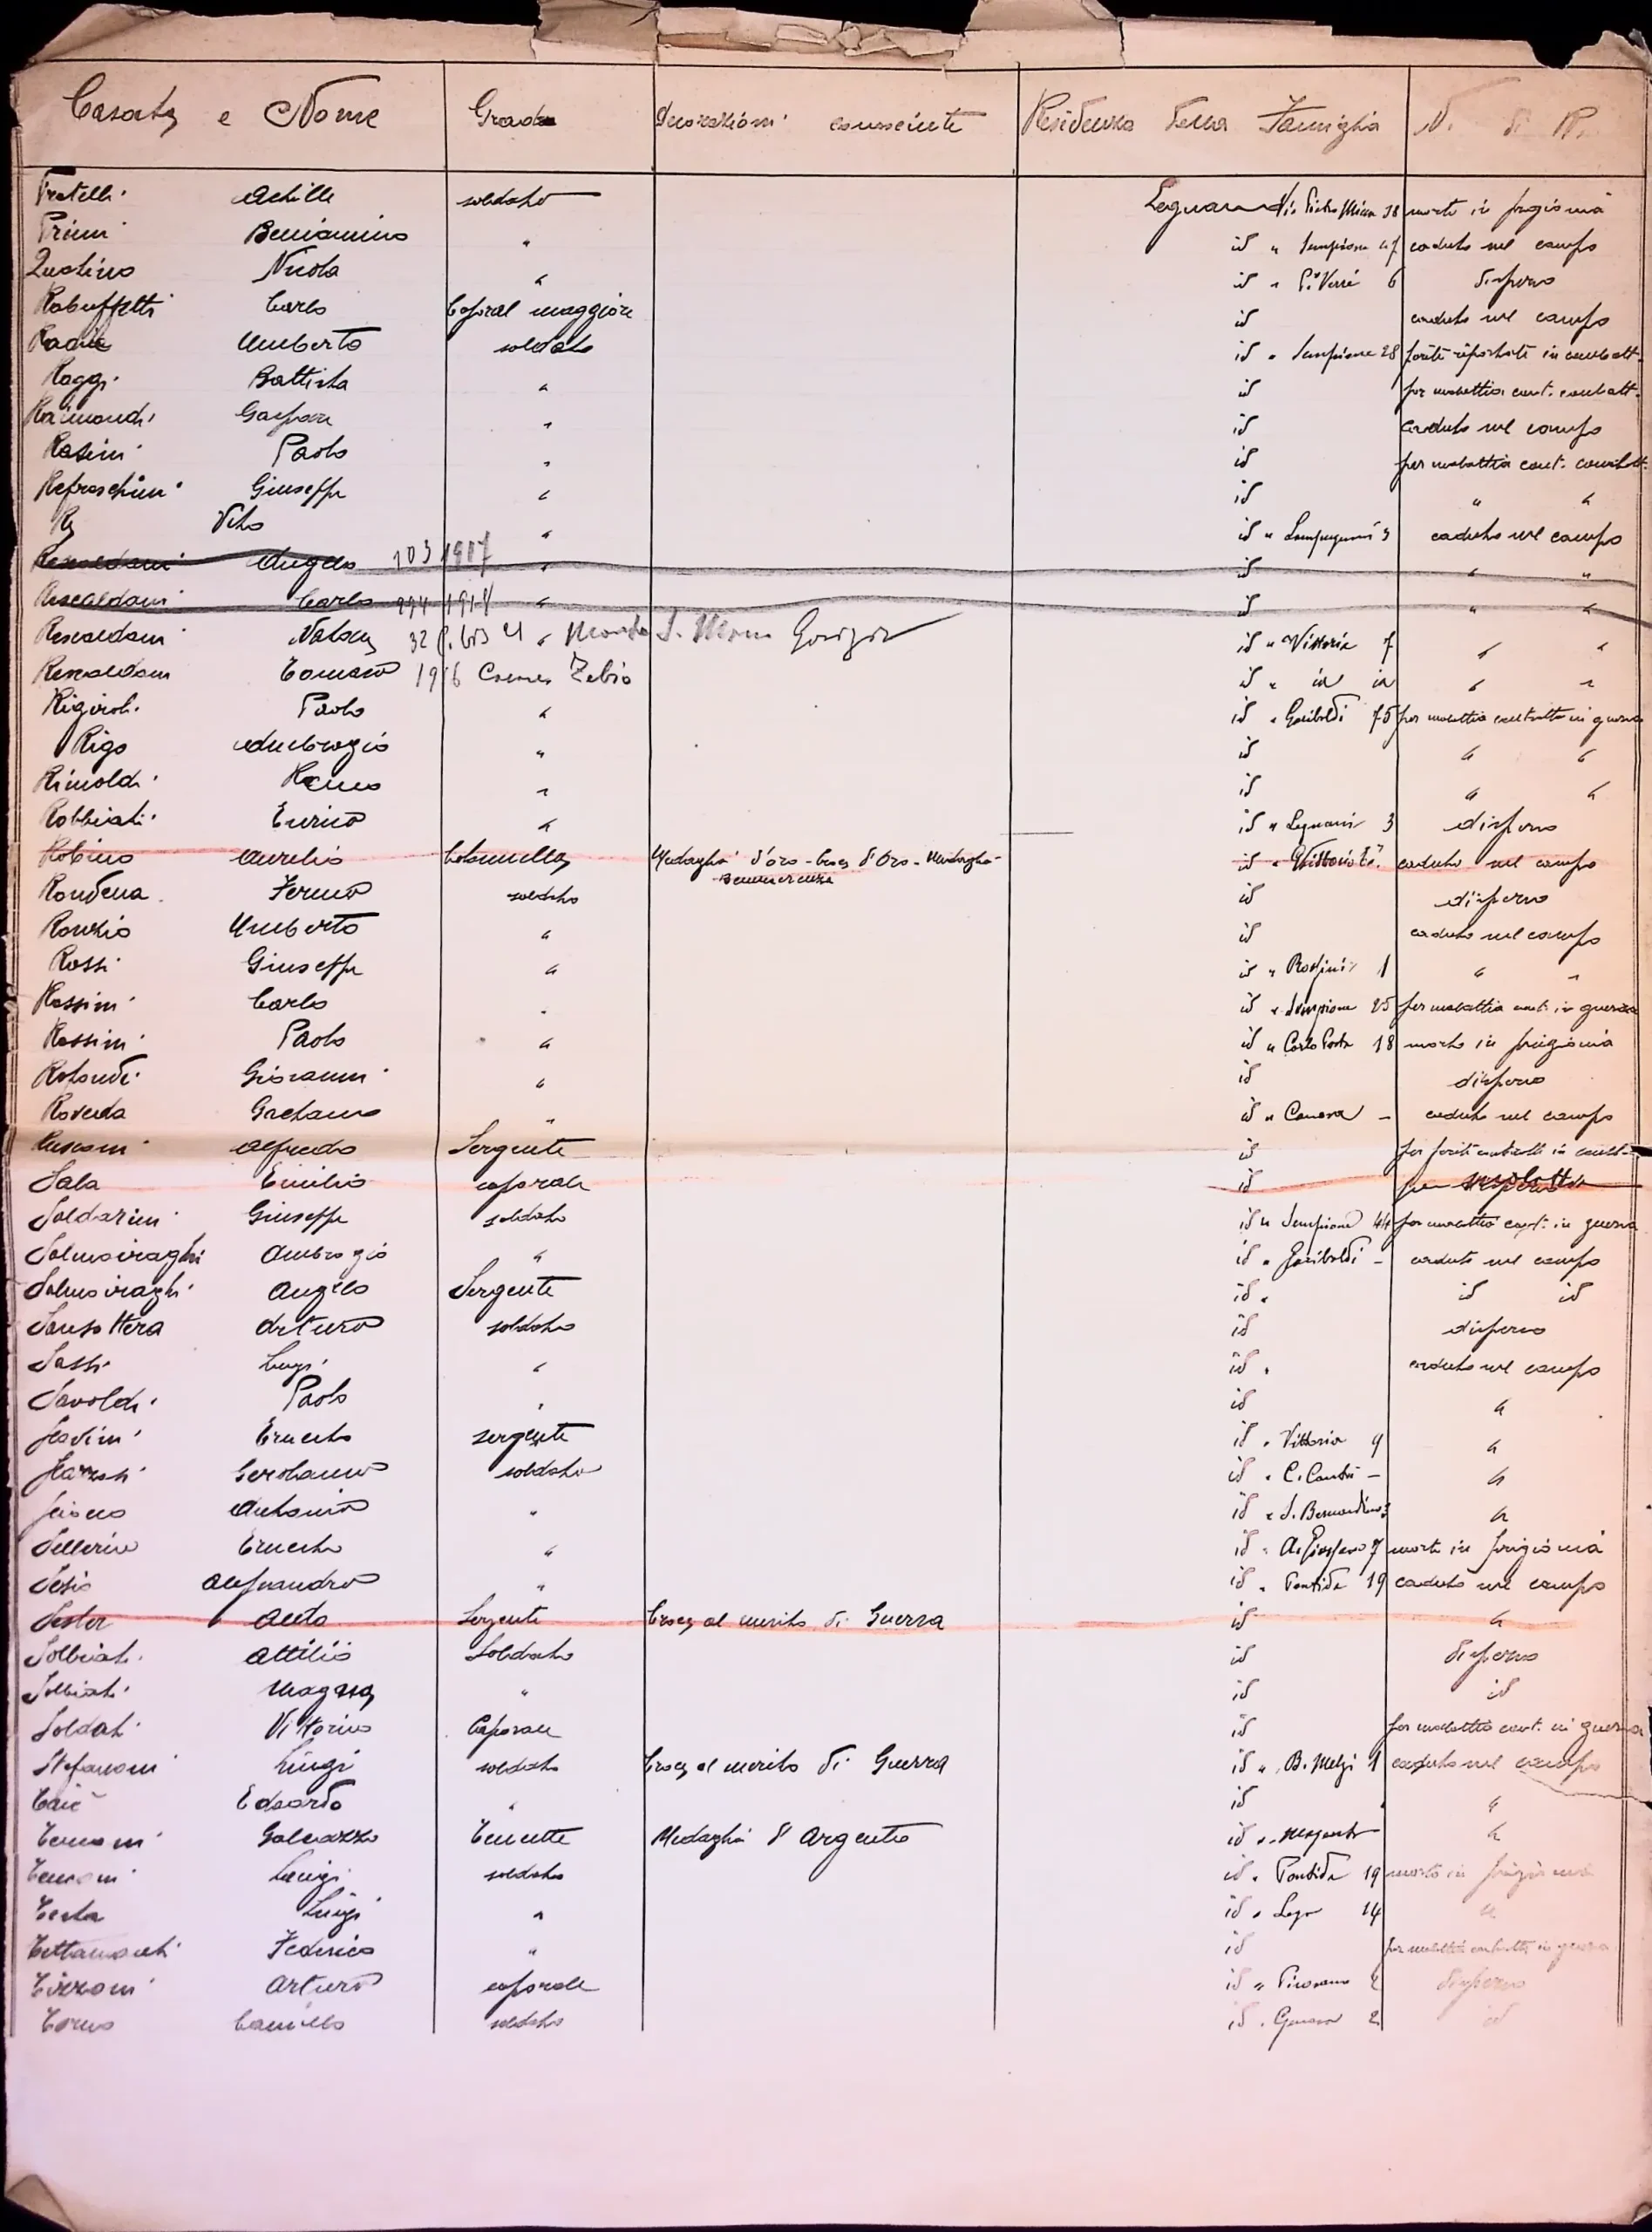 Casato e Nome Grado Decorazioni conosciute Residenza della Famiglia N. di R.
Pratelli Achille soldato Legnano Via Pietro Micca 38 morto in prigionia
Primi Beniamino " id " Sempione 47 caduto nel campo
Nicola " id " 6 disperso
Rabuffetti Carlo Caporal maggiore id caduto nel campo
Umberto soldato id " Sempione 28 ferite riportate in combatt.
Raggi Battista " id per malattia cont. combatt.
Raimondi Gaspare " id caduto nel campo
Rasini Paolo " id per malattia cont. combatt.
Refraschini Giuseppe " id " "
Re Vito " id " Lampugnani 3 caduto nel campo
Rescaldani Angelo 103 1917 " id " "
Rescaldani Carlo 294 1918 " id " "
Rescaldani Natale 32 " Monte S. Gorizia id " Vittoria 7 " "
Rescaldani Tomaso 1916 Zebio id " id id " "
Rigiroli Paolo " id " Garibaldi 75 per malattia contratta in guerra
Rigo Ambrogio " id " "
Rimoldi Remo " id " "
Robbiati Enrico " id " Legnani 3 disperso
Robino Aurelio Colonnello Medaglia d'oro - Croce d'Oro - Medaglia id " Vittorio E. caduto nel campo
Benemerenza
Rondena Fermo soldato id disperso
Ronzio Umberto " id caduto nel campo
Rossi Giuseppe " id " 1 " "
Rossini Carlo " id " Sempione 25 per malattia cont. in guerra
Rossini Paolo " id " Carlo Porta 18 morto in prigionia
Rotondi Giovanni " id disperso
Roveda Gaetano " id " Canova - caduto nel campo
Rusconi Alfredo Sergente id per feriti in comb.
Sala Emilio caporale id per malattia
Soldarini Giuseppe soldato id " Sempione 44 per malattia cont. in guerra
Salmoiraghi Ambrogio " id " Garibaldi - caduto nel campo
Salmoiraghi Angelo Sergente id " id id
Sansottera Arturo soldato id disperso
Sassi Luigi " id " caduto nel campo
Savoldi Paolo " id "
Ernesto sergente id " Vittoria 9 "
Gerolamo soldato id " C. Cantù - "
Antonio " id " S. Bernardino 3 "
Sellerio Ernesto " id " 7 morto in prigionia
Sesia Alessandro " id " Pontida 19 caduto nel campo
Sester Aldo Sergente Croce al merito di Guerra id "
Solbiati Attilio Soldato id disperso
Solbiati Magno " id id
Soldati Vittorino Caporale id per malattia cont. in guerra
Stefanoni Luigi soldato Croce al merito di Guerra id " B. Melzi 1 caduto nel campo
Edoardo " id "
Temoni Galeazzo Tenente Medaglia d'Argento id " "
Temoni Luigi soldato id " Pontida 19 morto in prigionia
Testa Luigi " id " Lega 14 "
Tettamanti Federico " id per malattia contratta in guerra
Tizzoni Arturo caporale id " 2 disperso
Torno Camillo soldato id " Genova 2 id